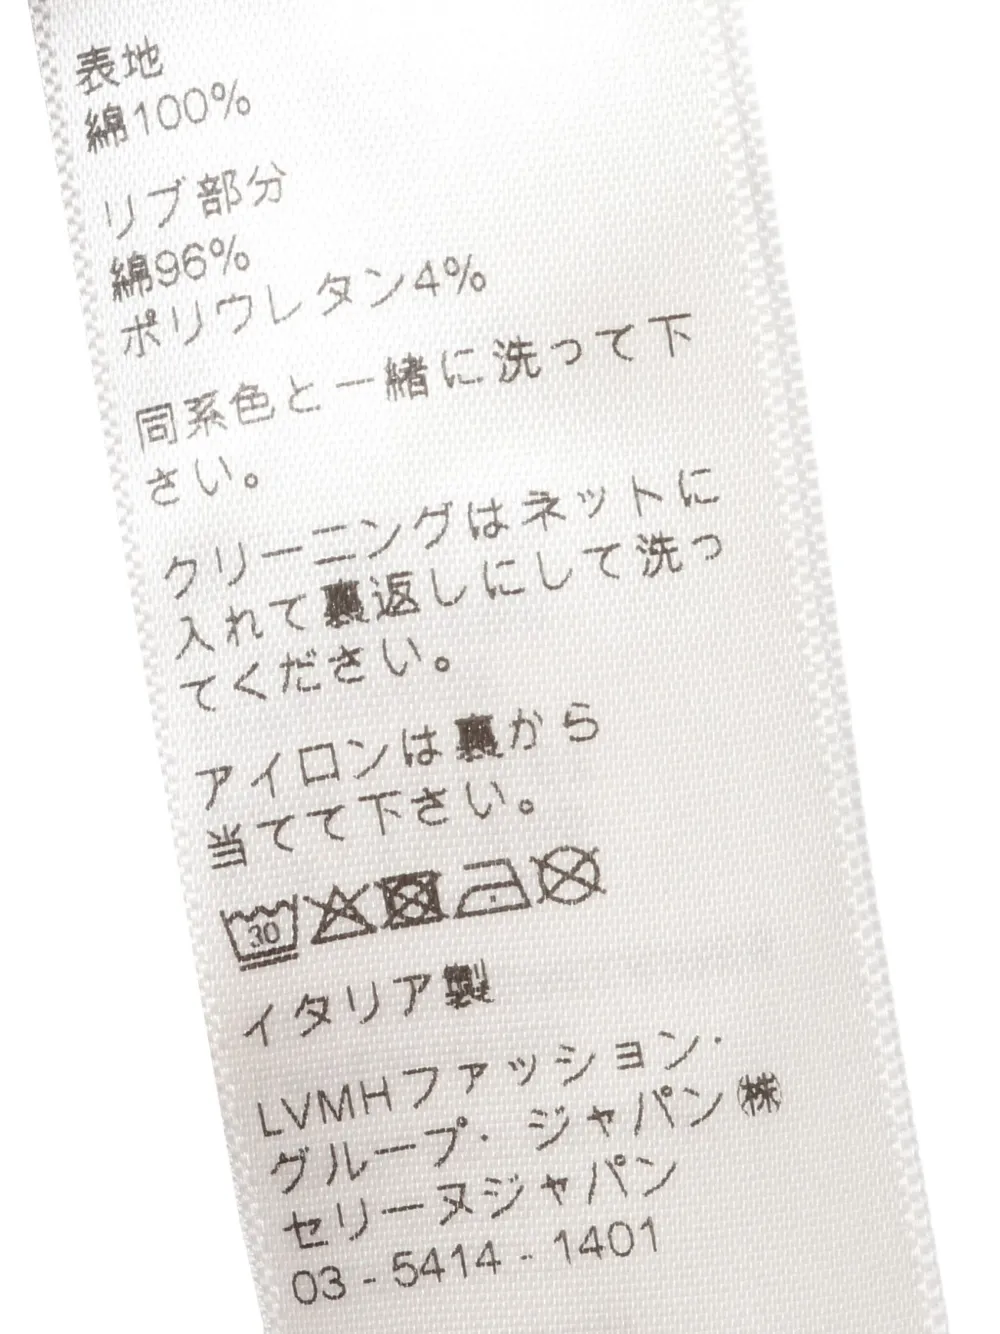 表地
綿100%
リブ部分
綿96%
ポリウレタン4%
同系色と一緒に洗って下
さい。
クリーニングはネットに
入れて裏返しにして洗っ
てください。
アイロンは裏から
当てて下さい。
30
イタリア製
LVMHファッション・
グループ・ジャパン㈱
セリーヌジャパン
03-5414-1401